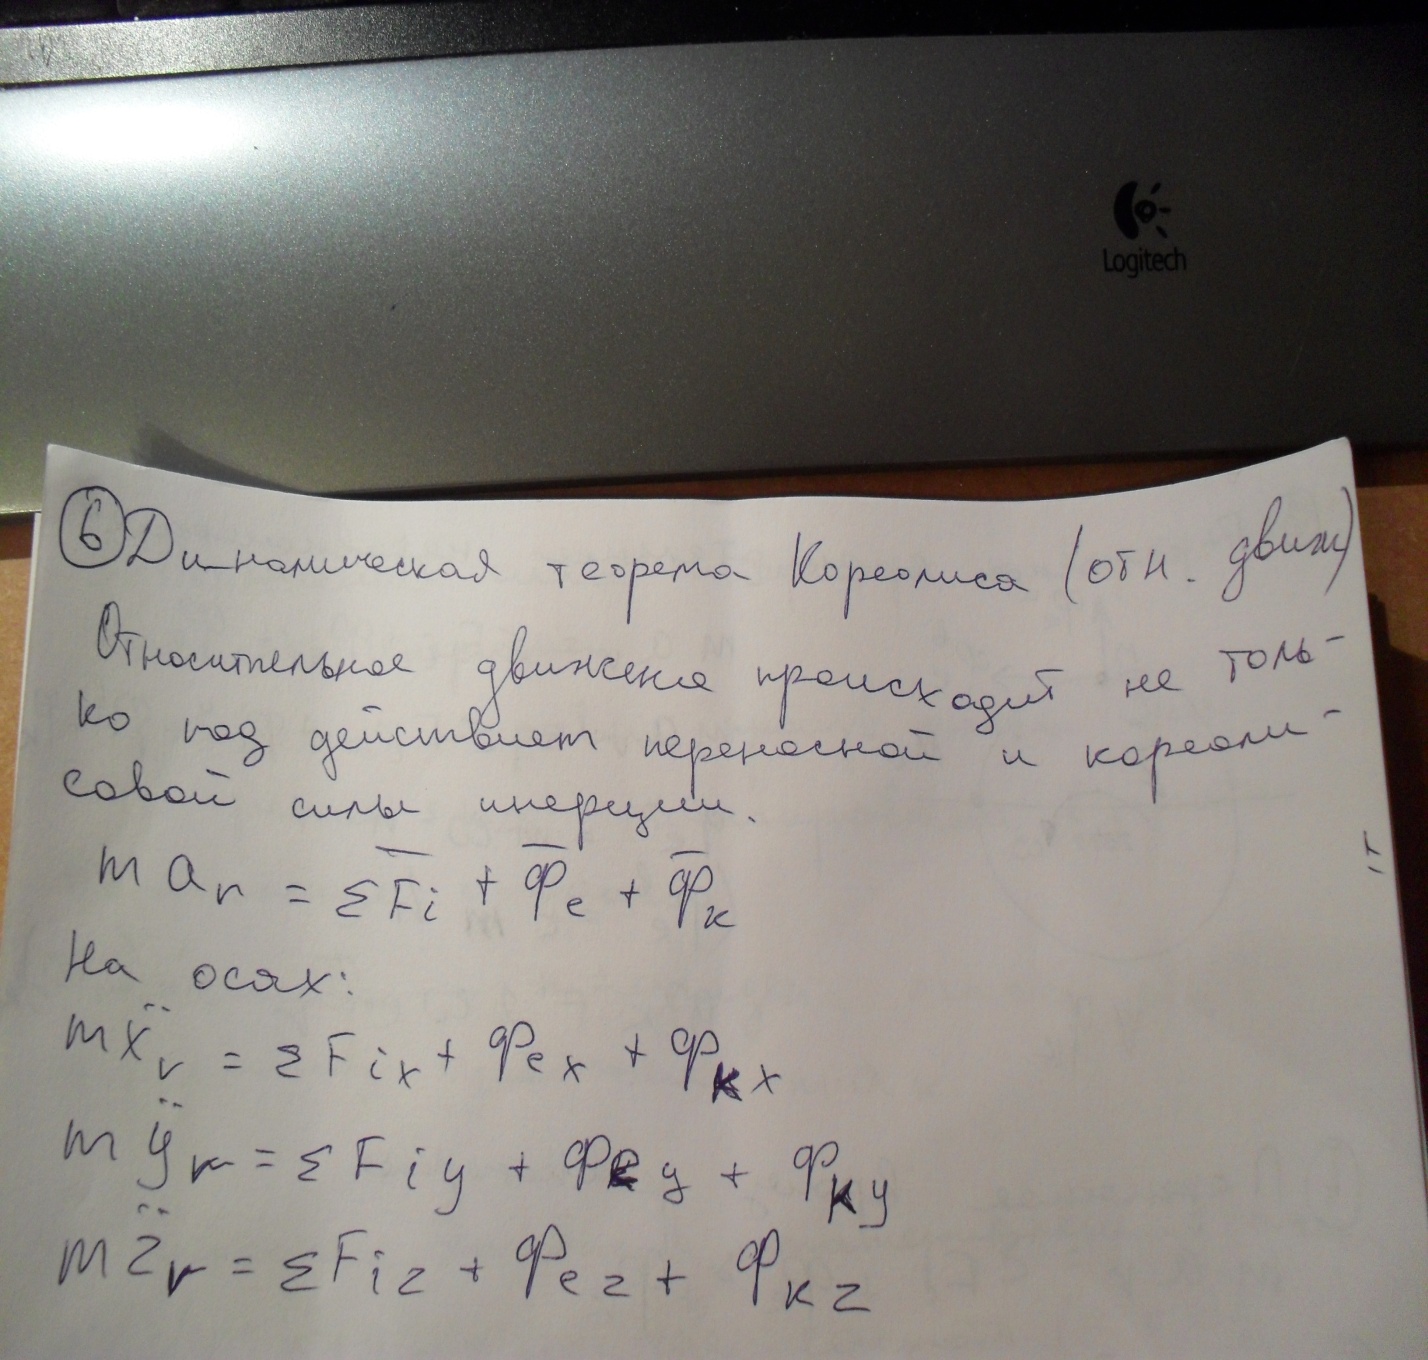 Logitech
6 Динамическая теорема Кореолиса (отн. движ)
Относительное движение происходит не толь-
ко под действием переносной и кореоли-
совой силы инерции.
m a_r = ΣF̅i + Ф̅e + Ф̅к
На осях:
mẍ_r = ΣFix + Фex + Фкx
mÿ_r = ΣFiy + Фey + Фкy
mz̈_r = ΣFiz + Фez + Фкz